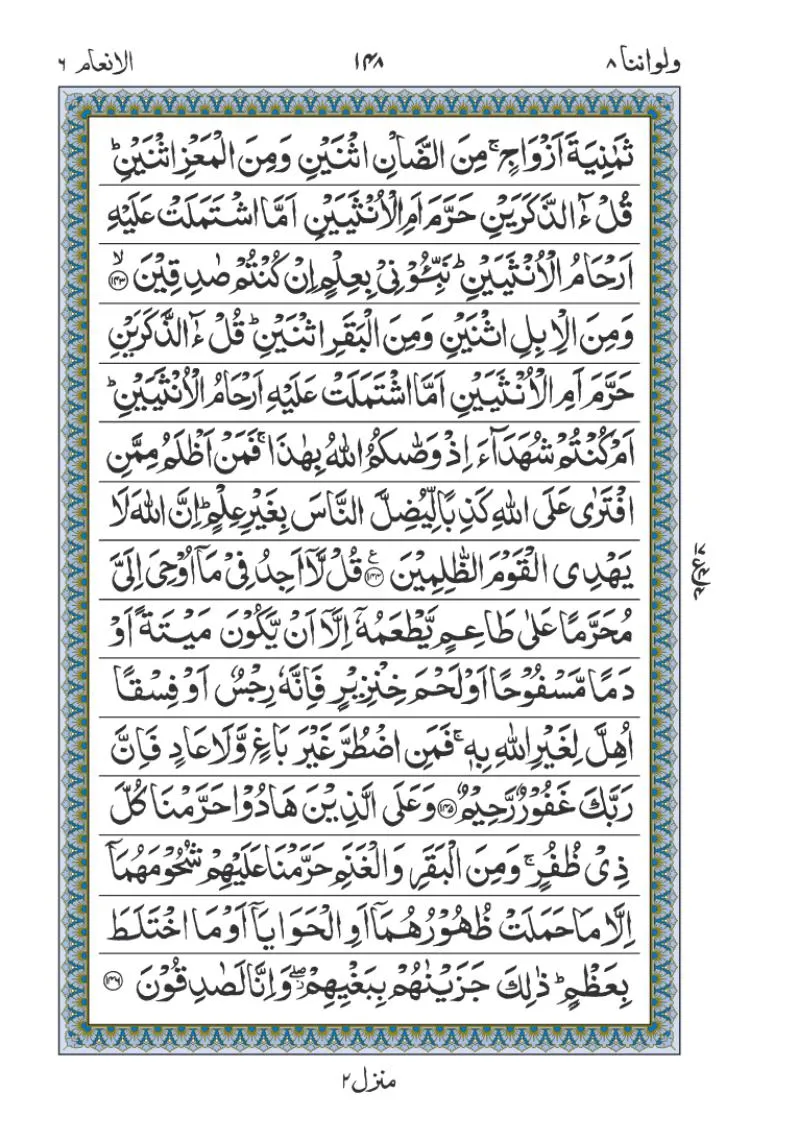 ولواننا ٨ ١٤٨ الانعام ٦
ثَمٰنِيَةَ اَزْوَاجٍ ۚ مِنَ الضَّاْنِ اثْنَيْنِ وَمِنَ الْمَعْزِ اثْنَيْنِ ؕ
قُلْ ءٰٓالذَّكَرَيْنِ حَرَّمَ اَمِ الْاُنْثَيَيْنِ اَمَّا اشْتَمَلَتْ عَلَيْهِ
اَرْحَامُ الْاُنْثَيَيْنِ ؕ نَبِّـُٔوْنِيْ بِعِلْمٍ اِنْ كُنْتُمْ صٰدِقِيْنَ ۙ ﴿١٤٣﴾
وَمِنَ الْاِبِلِ اثْنَيْنِ وَمِنَ الْبَقَرِ اثْنَيْنِ ؕ قُلْ ءٰٓالذَّكَرَيْنِ
حَرَّمَ اَمِ الْاُنْثَيَيْنِ اَمَّا اشْتَمَلَتْ عَلَيْهِ اَرْحَامُ الْاُنْثَيَيْنِ ؕ
اَمْ كُنْتُمْ شُهَدَآءَ اِذْ وَصّٰىكُمُ اللّٰهُ بِهٰذَا ۚ فَمَنْ اَظْلَمُ مِمَّنِ
افْتَرٰى عَلَى اللّٰهِ كَذِبًا لِّيُضِلَّ النَّاسَ بِغَيْرِ عِلْمٍ ؕ اِنَّ اللّٰهَ لَا
يَهْدِى الْقَوْمَ الظّٰلِمِيْنَ ﴿١٤٤﴾ ع قُلْ لَّاۤ اَجِدُ فِيْ مَاۤ اُوْحِيَ اِلَيَّ
مُحَرَّمًا عَلٰى طَاعِمٍ يَّطْعَمُهٗۤ اِلَّاۤ اَنْ يَّكُوْنَ مَيْتَةً اَوْ
دَمًا مَّسْفُوْحًا اَوْ لَحْمَ خِنْزِيْرٍ فَاِنَّهٗ رِجْسٌ اَوْ فِسْقًا
اُهِلَّ لِغَيْرِ اللّٰهِ بِهٖ ۚ فَمَنِ اضْطُرَّ غَيْرَ بَاغٍ وَّلَا عَادٍ فَاِنَّ
رَبَّكَ غَفُوْرٌ رَّحِيْمٌ ﴿١٤٥﴾ وَعَلَى الَّذِيْنَ هَادُوْا حَرَّمْنَا كُلَّ
ذِيْ ظُفُرٍ ۚ وَمِنَ الْبَقَرِ وَالْغَنَمِ حَرَّمْنَا عَلَيْهِمْ شُحُوْمَهُمَاۤ
اِلَّا مَا حَمَلَتْ ظُهُوْرُهُمَاۤ اَوِ الْحَوَايَاۤ اَوْ مَا اخْتَلَطَ
بِعَظْمٍ ؕ ذٰلِكَ جَزَيْنٰهُمْ بِبَغْيِهِمْ ۖ وَاِنَّا لَصٰدِقُوْنَ ﴿١٤٦﴾
منزل ٢